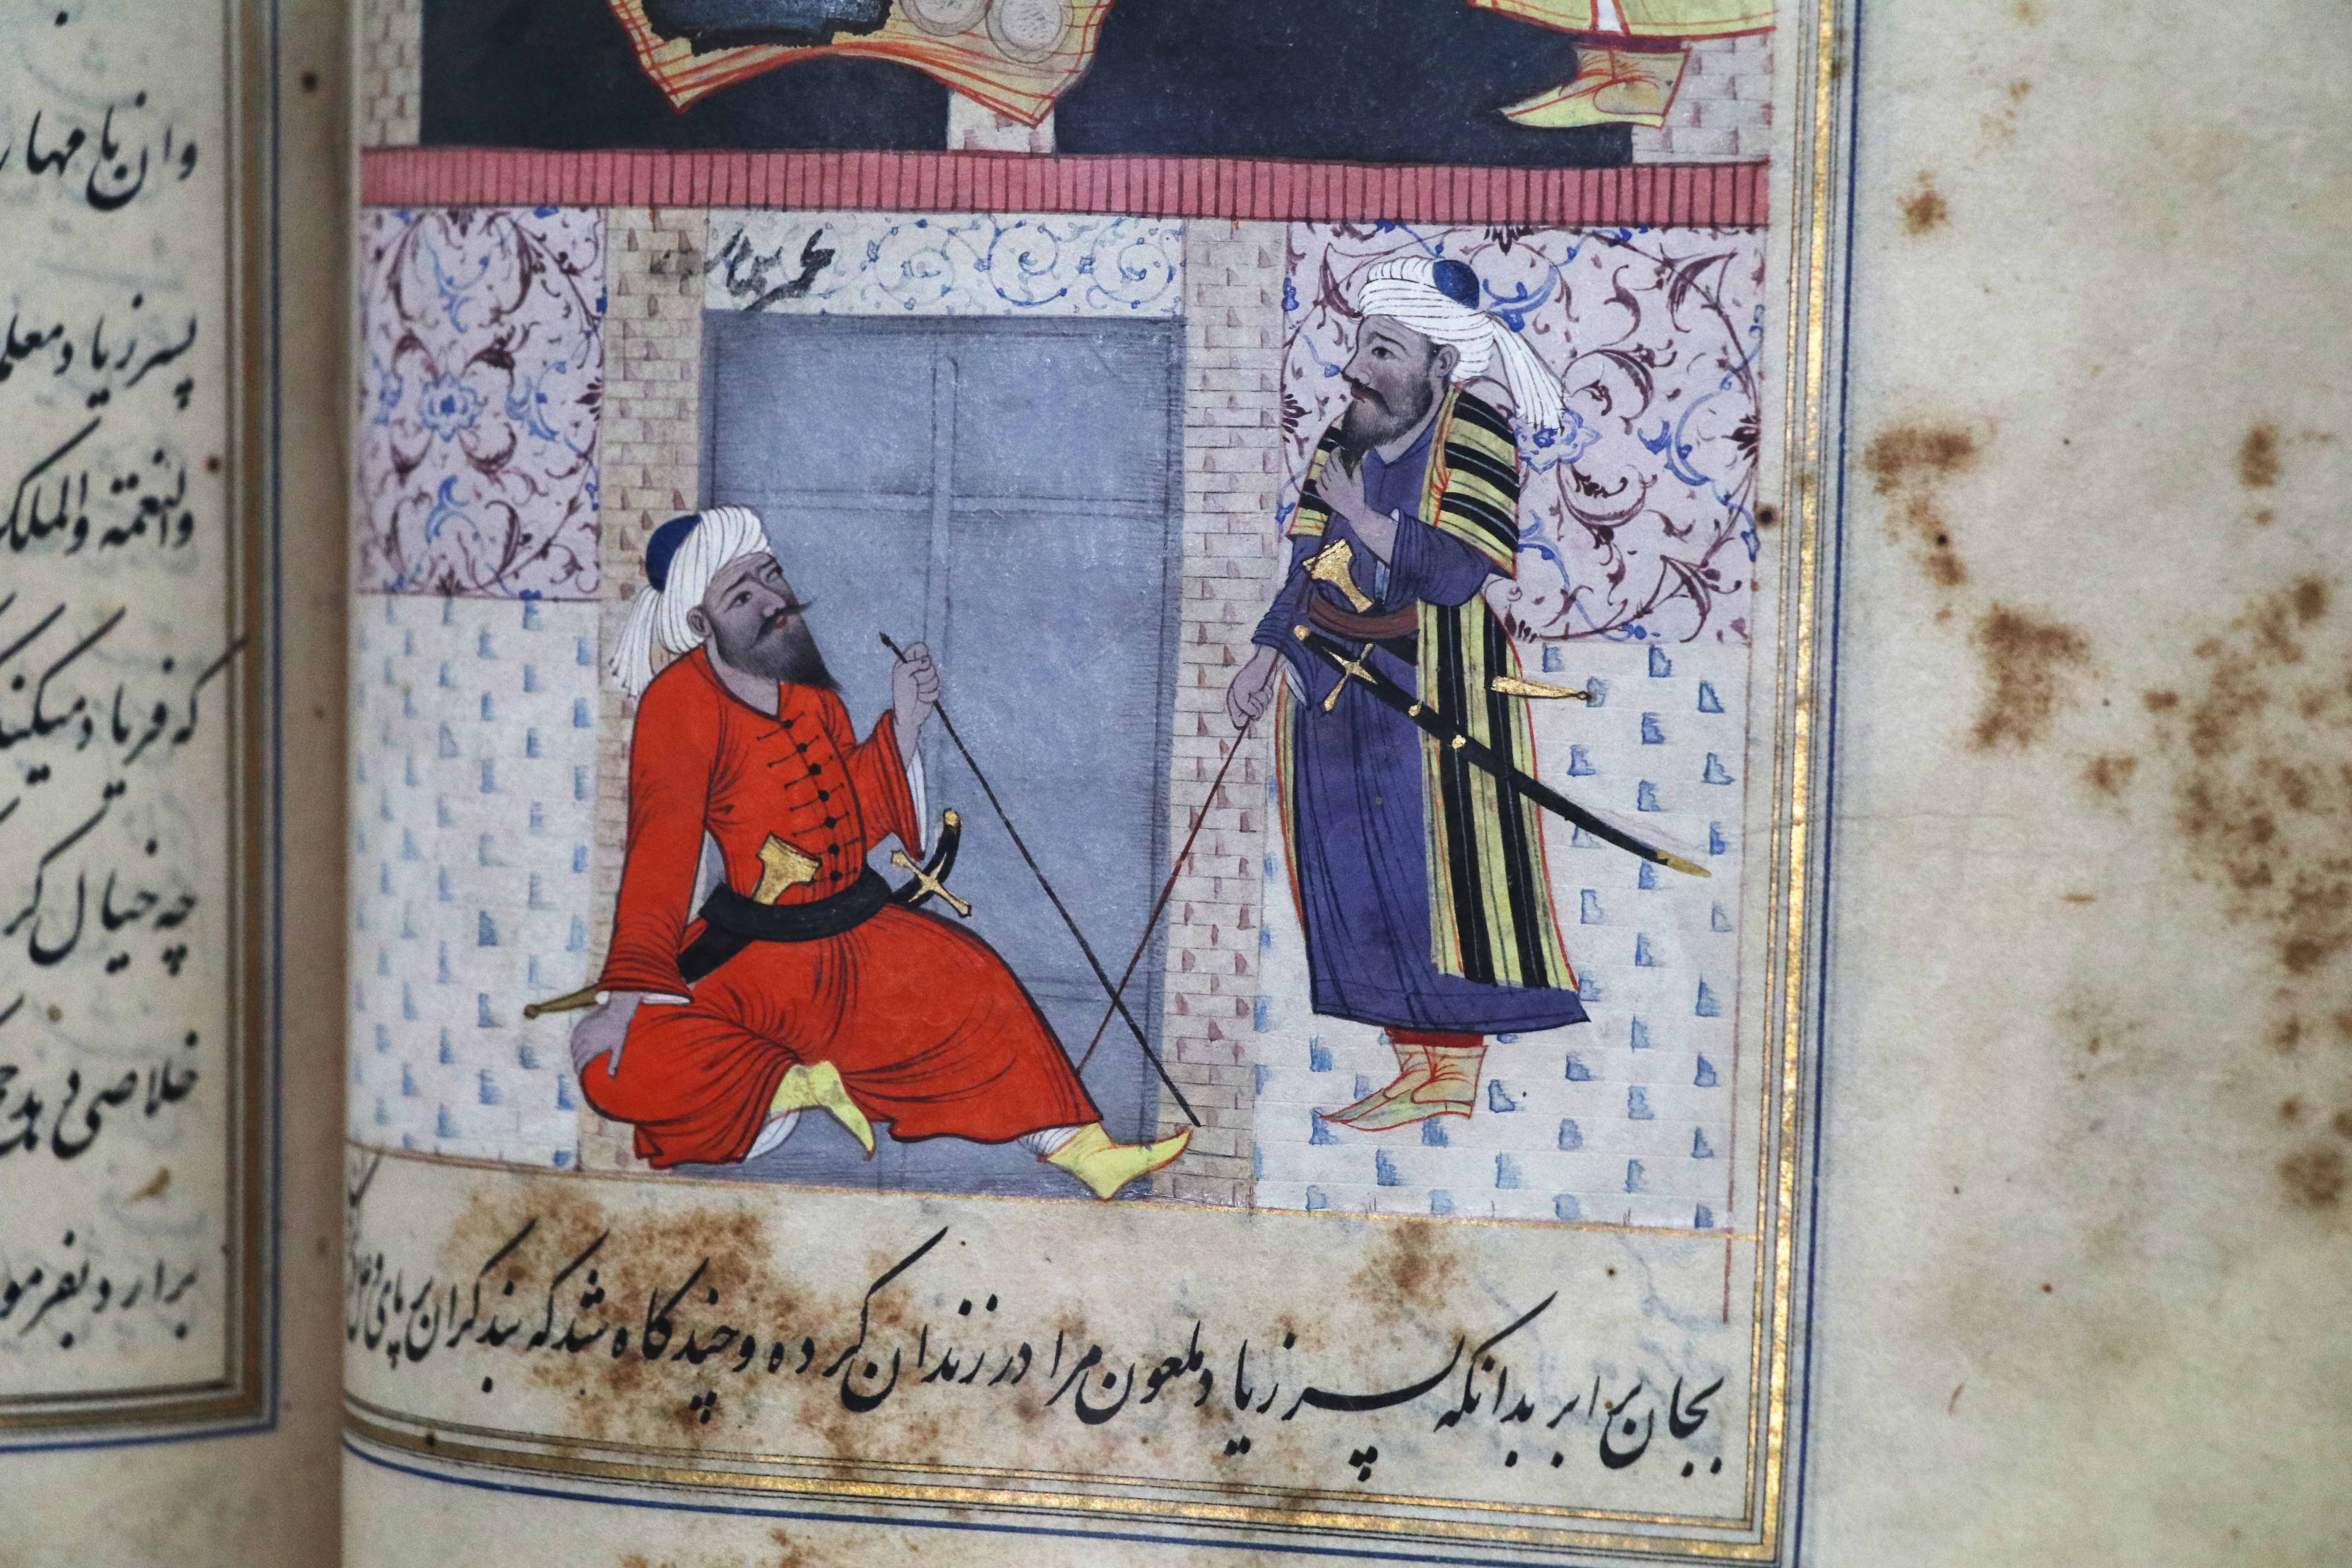 وان با مهار
پسر زیاد معلو
والنعمته والملک
که فریاد میکنید
چه خیال کر
خلاصی دهد
برارد بفرمو
بجان برابر بدانکه پسر زیاد ملعون مرا در زندان کرده و چندگاه شد که بند گران بر پای